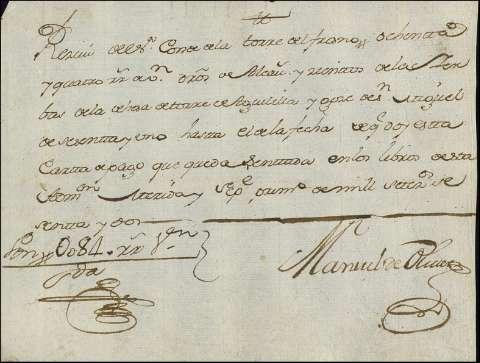 Reciví del Sr. Conde de la torre del fresno ochenta
y quatro rr. de Vn. dros. de Alcav. y de las Yer
bas de la deha. de torre de Aguililla y de Sn. Miguel
de sesenta y uno hasta el de la fecha de q. doy esta
Carta de pago que queda sentada en los libros de esta
Admon. Mérida y Sepe. primo. de mill setens. se
senta y dos
Son 0084 rr. Vn.
Manuel de